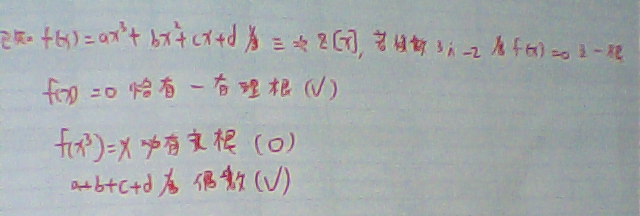 已知 f(x)=ax³+bx²+cx+d 為三次Z[x], 若 3i-2 為 f(x)=0 之一根
f(x)=0 恰有一有理根(√)
f(x³)=x 必有實根(O)
a+b+c+d 為偶數(√)